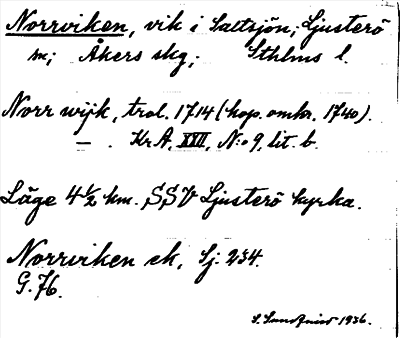 Norrviken, vik i Saltsjön; Ljusterö
sn; Åkers skg; Sthlms l.
Norr wijk, trol. 1714 (kop. omkr. 1740).
— . Kr A, XXII, N:o 9, lit. b.
Läge 4 ½ km. SSV Ljusterö kyrka.
Norrviken ek, Sj: 234.
G. 76.
S. 1936.